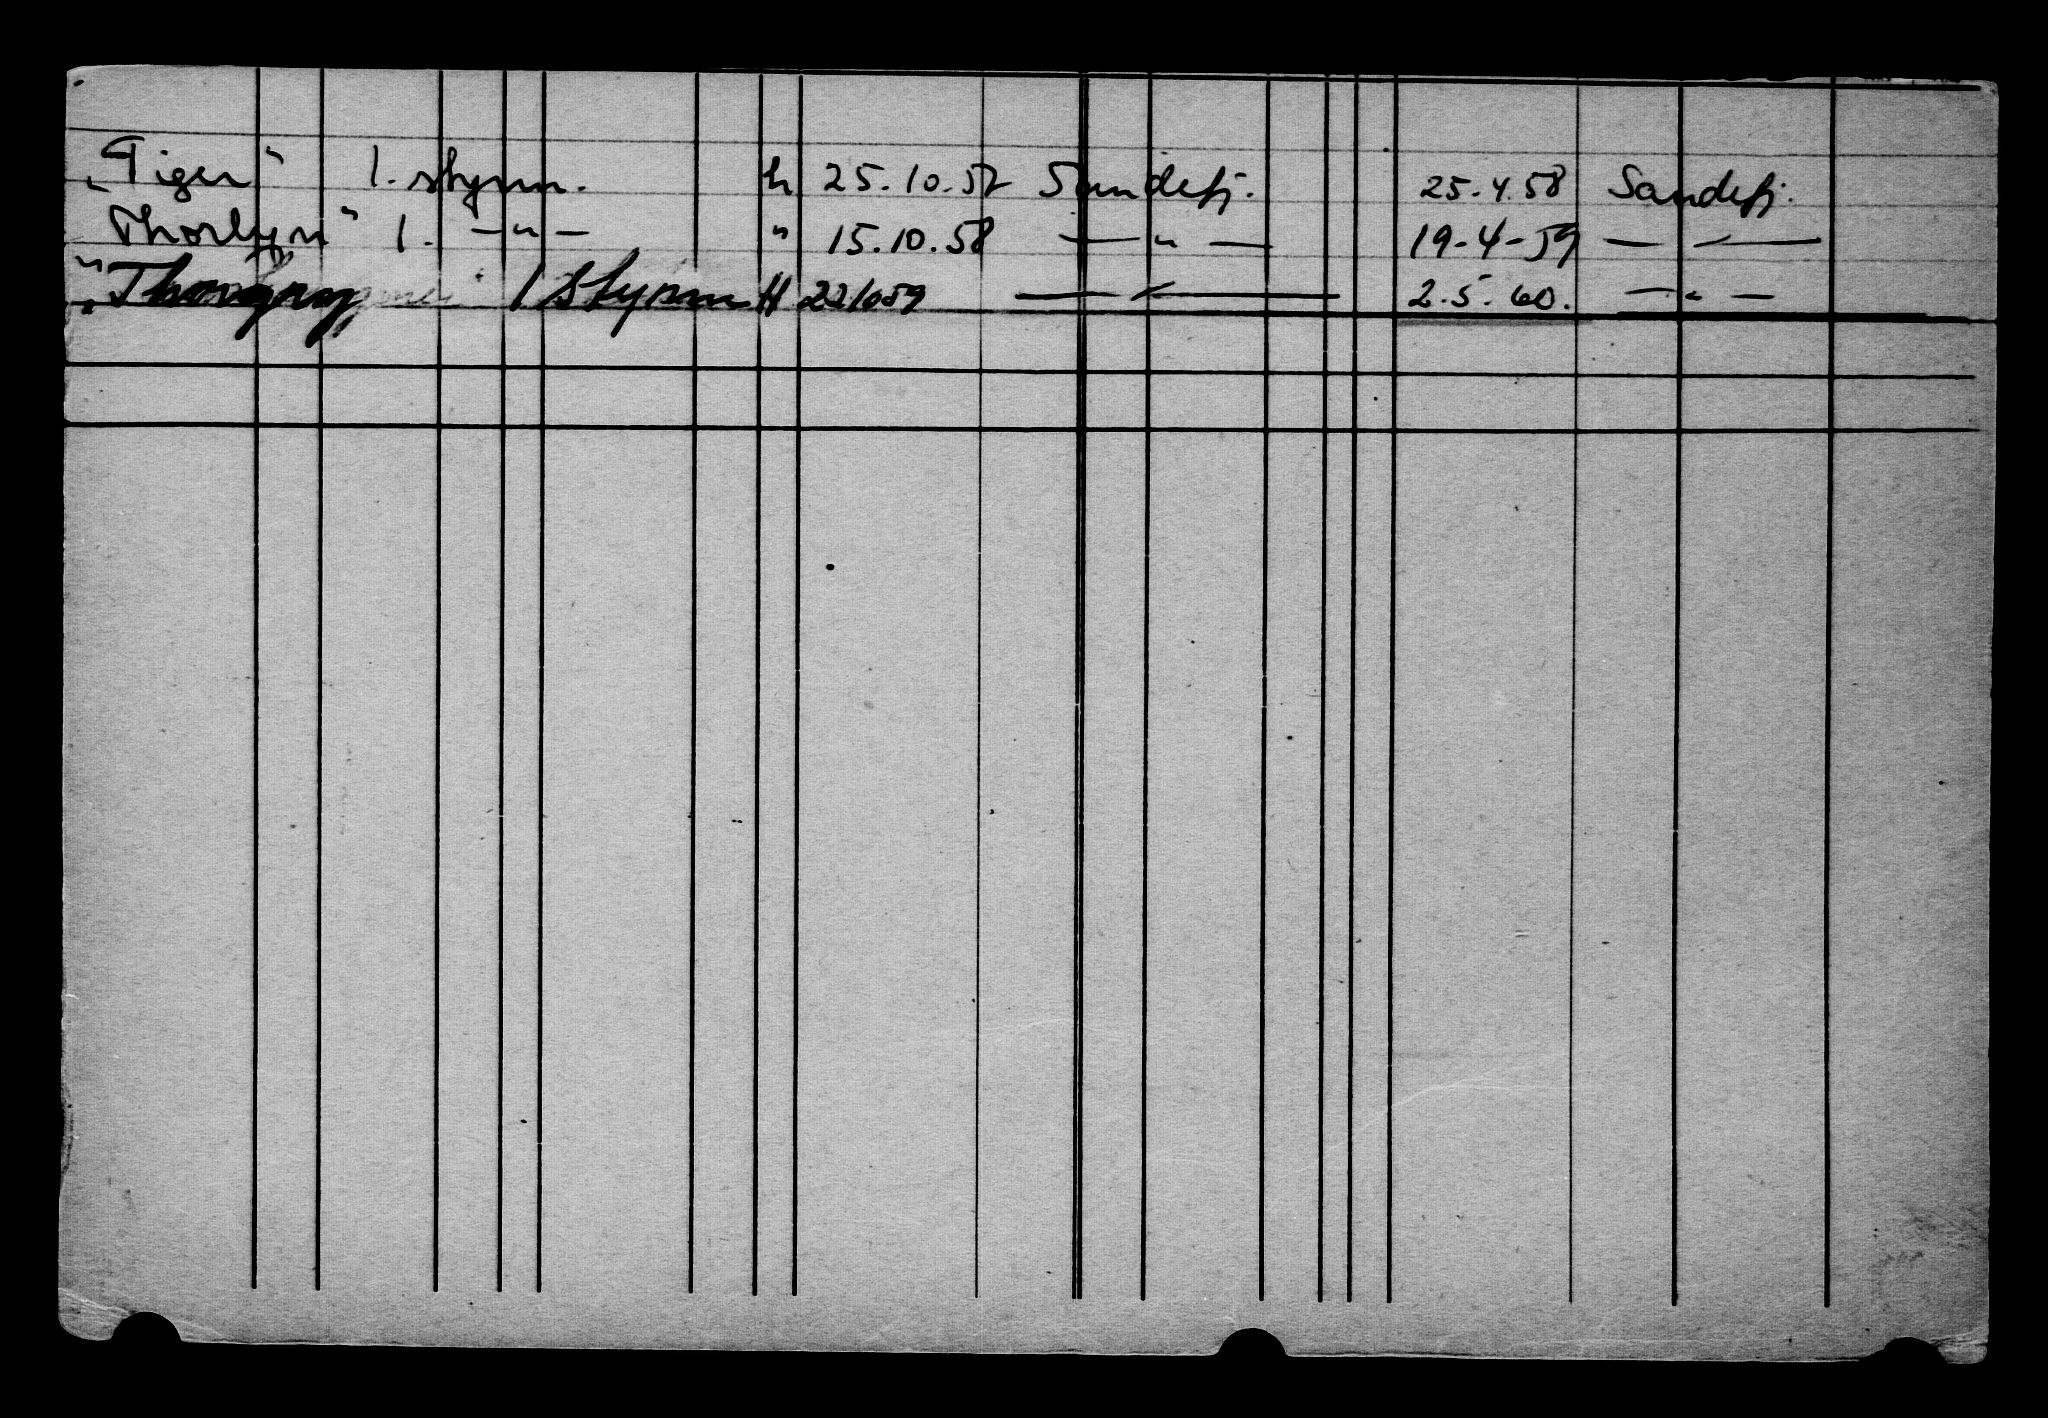 „Tiger" 1. styrm. h 25.10.57 Sandefj. 25.4.58 Sandefj.
„Thorbyrn" 1. — " — " 15.10.58 — " — 19-4-59 — " —
„Thorgny" 1 Styrm H 221059 — " — 2.5.60. — " —